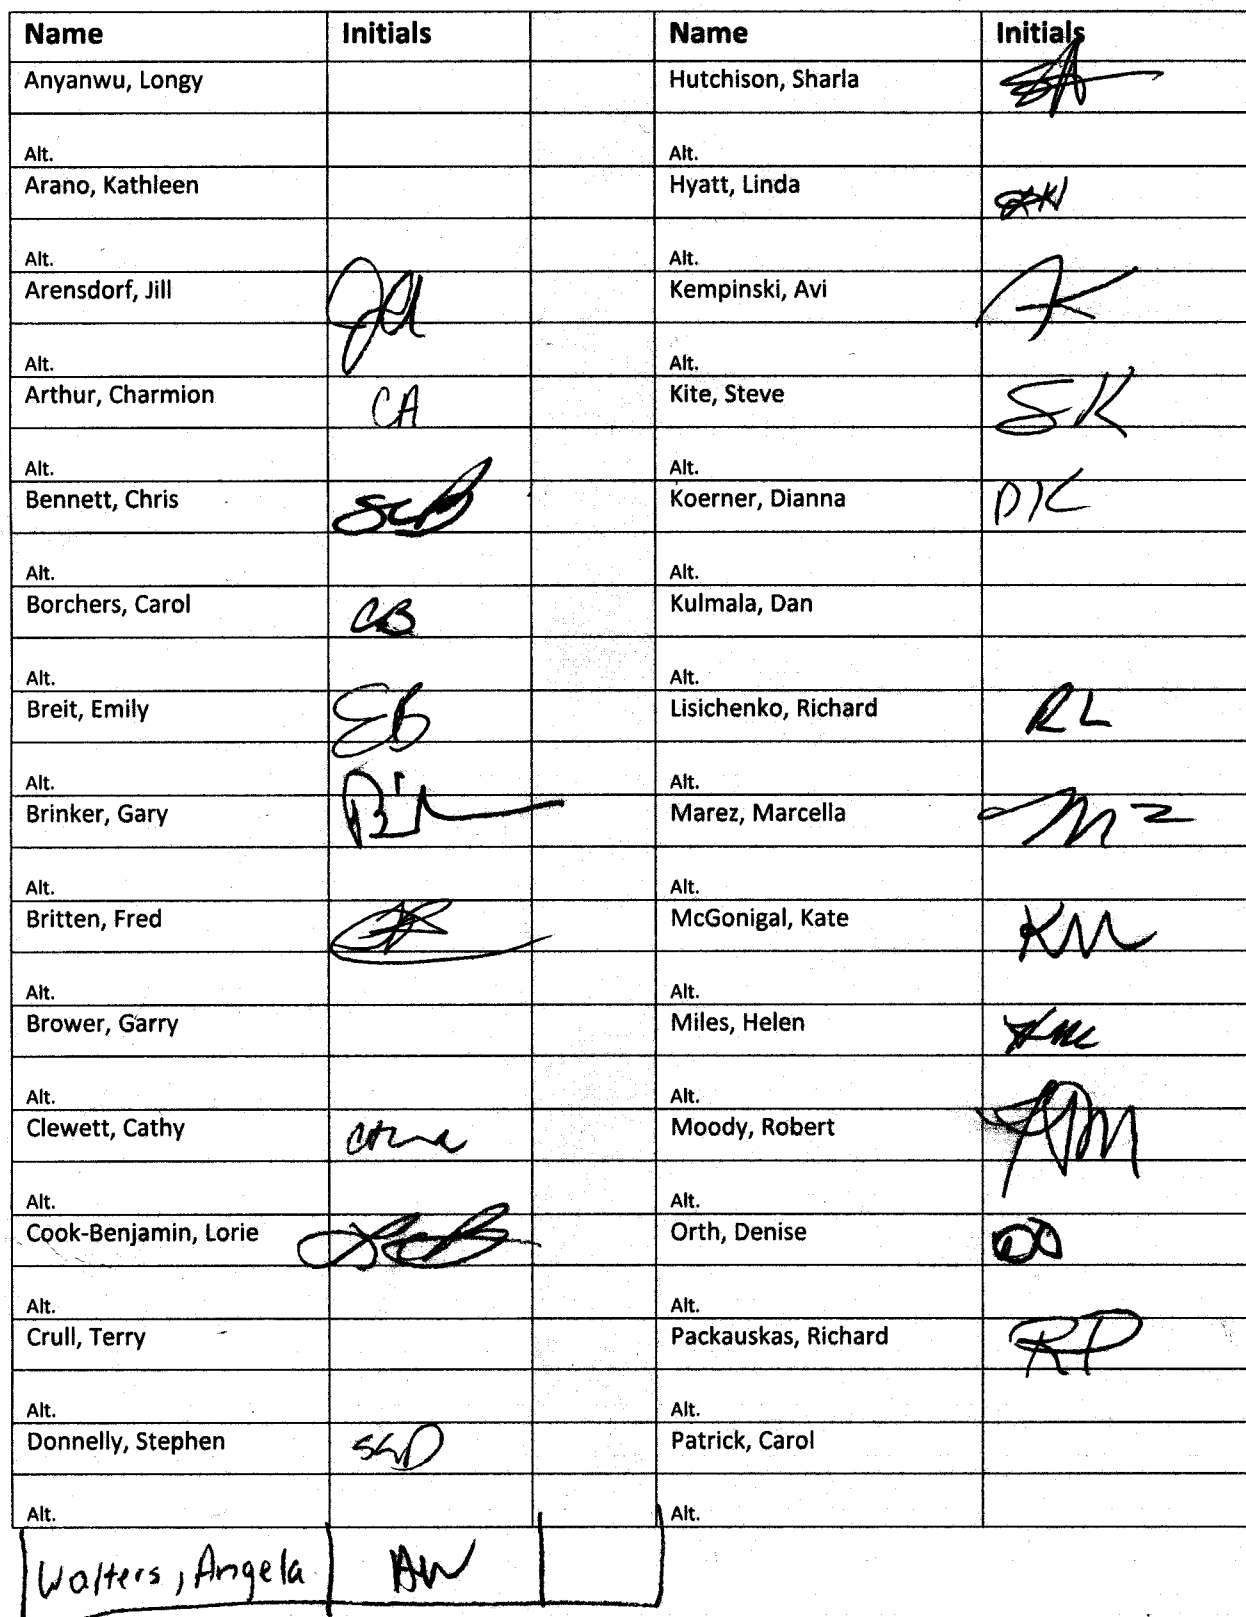 Name Initials Name Initials
Anyanwu, Longy Hutchison, Sharla
Alt. Alt.
Arano, Kathleen Hyatt, Linda
Alt. Alt.
Arensdorf, Jill Kempinski, Avi
Alt. Alt.
Arthur, Charmion CA Kite, Steve SK
Alt. Alt.
Bennett, Chris SCB Koerner, Dianna DK
Alt. Alt.
Borchers, Carol CB Kulmala, Dan
Alt. Alt.
Breit, Emily EB Lisichenko, Richard RL
Alt. Alt.
Brinker, Gary Marez, Marcella
Alt. Alt.
Britten, Fred McGonigal, Kate KM
Alt. Alt.
Brower, Garry Miles, Helen
Alt. Alt.
Clewett, Cathy Moody, Robert
Alt. Alt.
Cook-Benjamin, Lorie LCB Orth, Denise DO
Alt. Alt.
Crull, Terry Packauskas, Richard RP
Alt. Alt.
Donnelly, Stephen SGD Patrick, Carol
Alt. Alt.
Walters, Angela AW